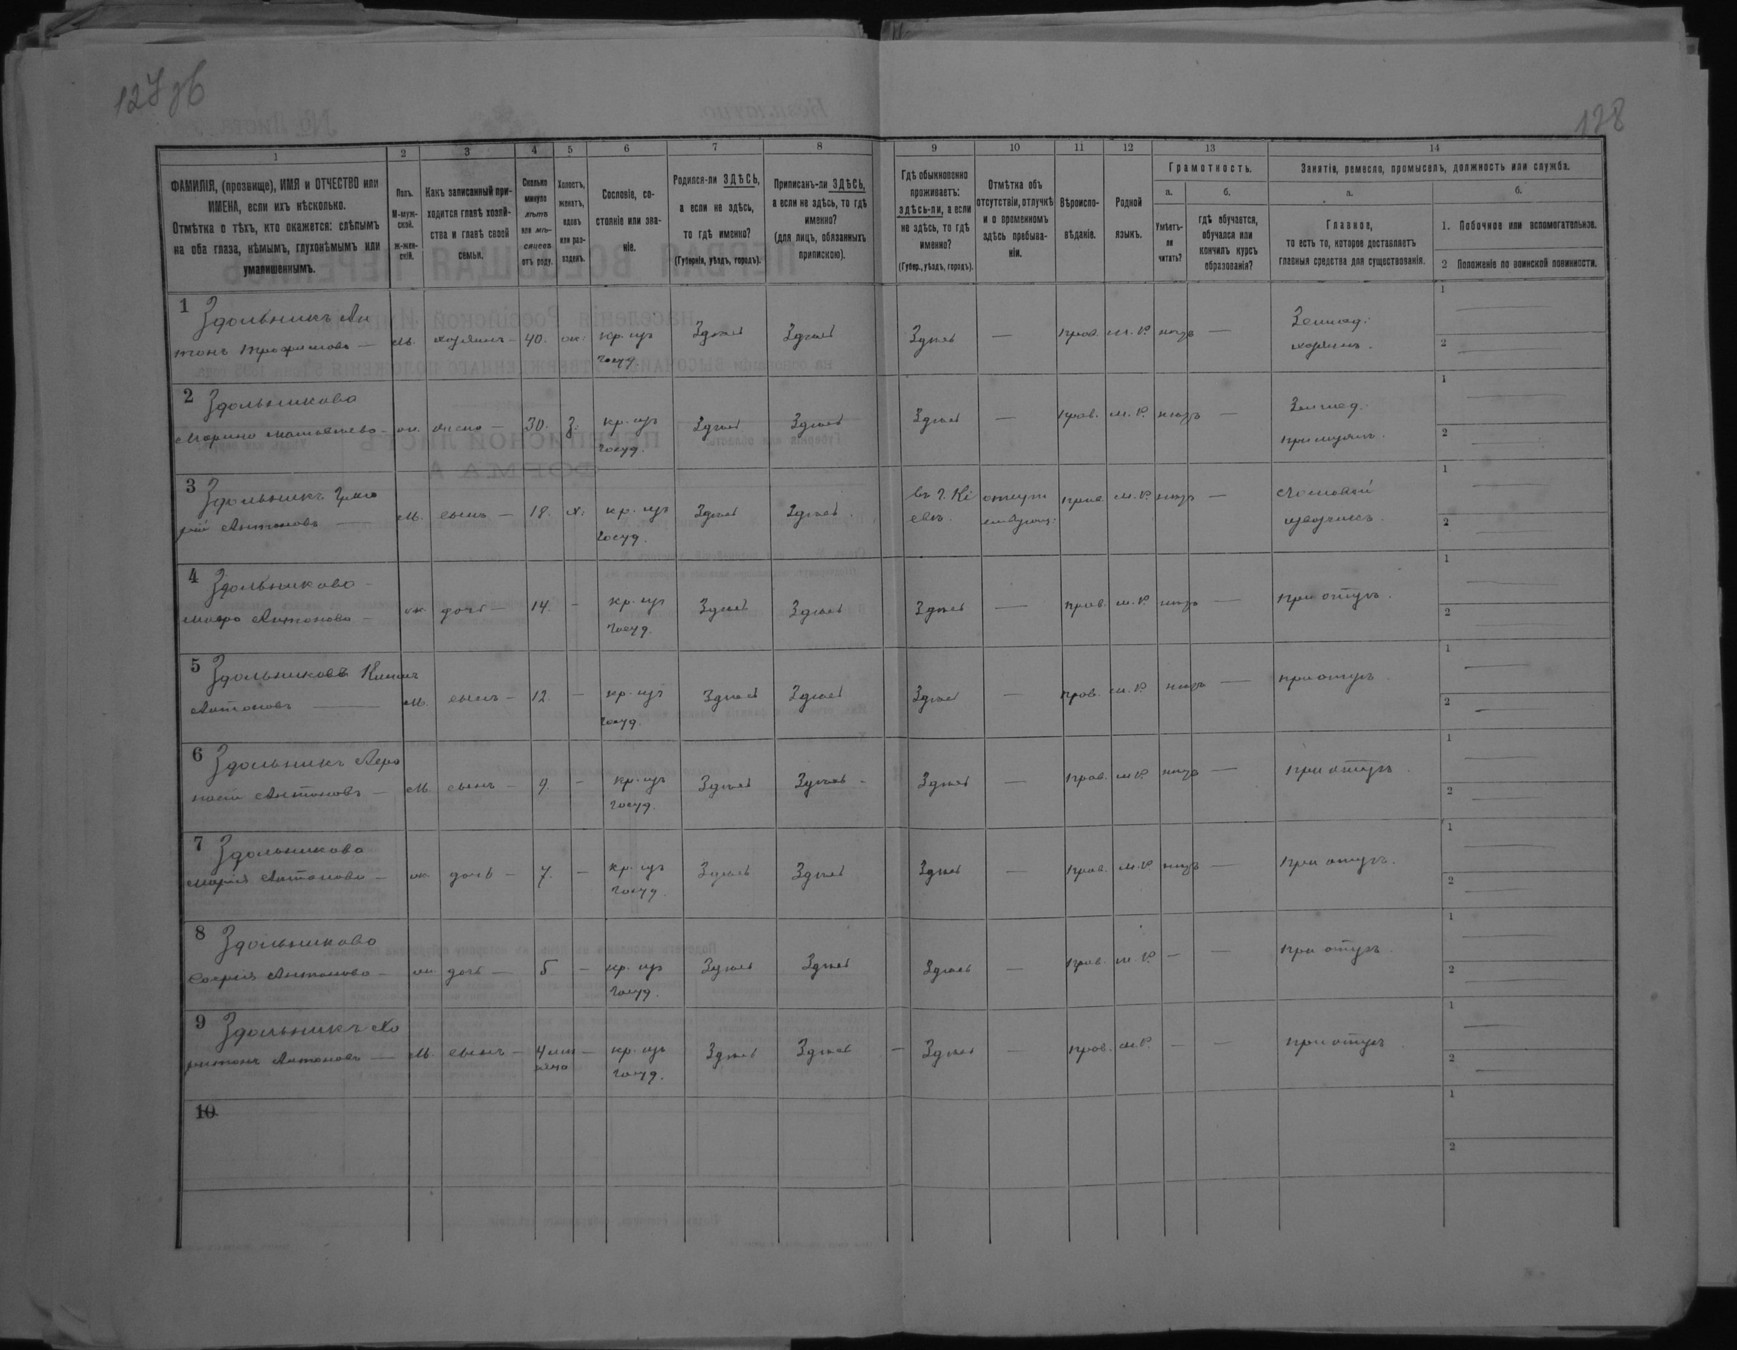 127 об
128
1
2
3
4
5
6
7
8
9
10
11
12
13
14
ФАМИЛІЯ, (прозвище), ИМЯ и ОТЧЕСТВО или
ИМЕНА, если ихъ нѣсколько.
Отмѣтка о тѣхъ, кто окажется: слѣпымъ
на оба глаза, нѣмымъ, глухонѣмымъ или
умалишеннымъ.
Полъ.
М-муж-
ской.
Ж-жен-
скій.
Какъ записанный при-
ходится главѣ хозяй-
ства и главѣ своей
семьи.
Сколько
минуло
лѣтъ
или мѣ-
сяцевъ
отъ роду.
Холостъ,
женатъ,
вдовъ
или раз-
веденъ.
Сословіе, со-
стояніе или зва-
ніе.
Родился-ли ЗДѢСЬ,
а если не здѣсь,
то гдѣ именно?
(Губернія, уѣздъ, городъ).
Приписанъ-ли ЗДѢСЬ,
а если не здѣсь, то гдѣ
именно?
(для лицъ, обязанныхъ
припискою).
Гдѣ обыкновенно
проживаетъ:
здѣсь-ли, а если
не здѣсь, то гдѣ
именно?
(Губер., уѣздъ, городъ).
Отмѣтка объ
отсутствіи, отлучкѣ
и о временномъ
здѣсь пребыва-
ніи.
Вѣроиспо-
вѣданіе.
Родной
языкъ.
Грамотность.
а.
Умѣетъ-
ли
читать?
б.
гдѣ обучается,
обучался или
кончилъ курсъ
образованія?
Занятіе, ремесло, промыселъ, должность или служба.
а.
Главное,
то есть то, которое доставляетъ
главныя средства для существованія.
б.
1. Побочное или вспомогательное.
2 Положеніе по воинской повинности.
1 Здольникъ Ан
тонъ Трофимовъ — м. хозяинъ — 40. ж. кр. изъ госуд. Здѣсь Здѣсь Здѣсь — прав. м. р. нѣтъ — Землед. хозяинъ. 1 — 2 —
2 Здольникова
Марина Матвѣева — ж. жена — 30. з. кр. изъ госуд. Здѣсь Здѣсь Здѣсь — прав. м. р. нѣтъ — Землед. при мужѣ. 1 — 2 —
3 Здольникъ Григо
рій Антоновъ — м. сынъ — 18. х. кр. изъ госуд. Здѣсь Здѣсь. въ г. Кі евѣ. прав. м. р. нѣтъ — извозчикъ. 1 — 2 —
4 Здольникова —
Мавра Антонова — ж. дочь — 14. — кр. изъ госуд. Здѣсь Здѣсь Здѣсь — прав. м. р. нѣтъ — при отцѣ. 1 — 2 —
5 Здольниковъ
Антоновъ — м. сынъ — 12 — кр. изъ госуд. Здѣсь Здѣсь Здѣсь — прав. м. р. нѣтъ — при отцѣ. 1 — 2 —
6 Здольникъ
Антоновъ — м. сынъ — 9 — кр. изъ госуд. Здѣсь Здѣсь — Здѣсь — прав. м. р. нѣтъ — при отцѣ. 1 — 2 —
7 Здольникова
Марія Антонова — ж. дочь — 7. — кр. изъ госуд. Здѣсь Здѣсь Здѣсь — прав. м. р. нѣтъ — при отцѣ. 1 — 2 —
8 Здольникова
Софія Антонова — ж дочь — 5 — кр. изъ госуд. Здѣсь Здѣсь Здѣсь — прав. м. р. — — при отцѣ. 1 — 2 —
9 Здольникъ Ха
ритонъ Антоновъ — м. сынъ — 4 мѣ сяца — кр. изъ госуд. Здѣсь Здѣсь — Здѣсь — прав. м. р. — — при отцѣ. 1 — 2 —
10
1
2